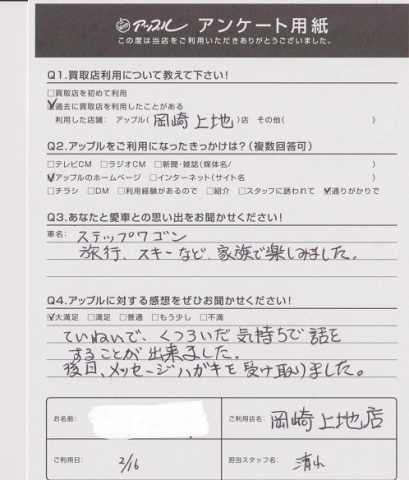 アップル アンケート用紙
この度は当店をご利用いただきありがとうございました。
Q1.買取店利用について教えて下さい!
□買取店を初めて利用
☑過去に買取店を利用したことがある
利用した店舗: アップル(岡崎上地)店 その他( )
Q2.アップルをご利用になったきっかけは?(複数回答可)
□テレビCM □ラジオCM □新聞・雑誌(媒体名/ )
☑アップルのホームページ □インターネット(サイト名 )
□チラシ □DM □利用経験があるので □紹介 □スタッフに誘われて ☑通りがかりで
Q3.あなたと愛車との思い出をお聞かせください!
車名: ステップワゴン
旅行、スキーなど、家族で楽しみました。
Q4.アップルに対する感想をぜひお聞かせください!
☑大満足 □満足 □普通 □もう少し □不満
ていねいで、くつろいだ気持ちで話を
することが出来ました。
後日、メッセージハガキを受け取りました。
お名前: ご利用店名: 岡崎上地店
ご利用日: 2/16 担当スタッフ名: 清水